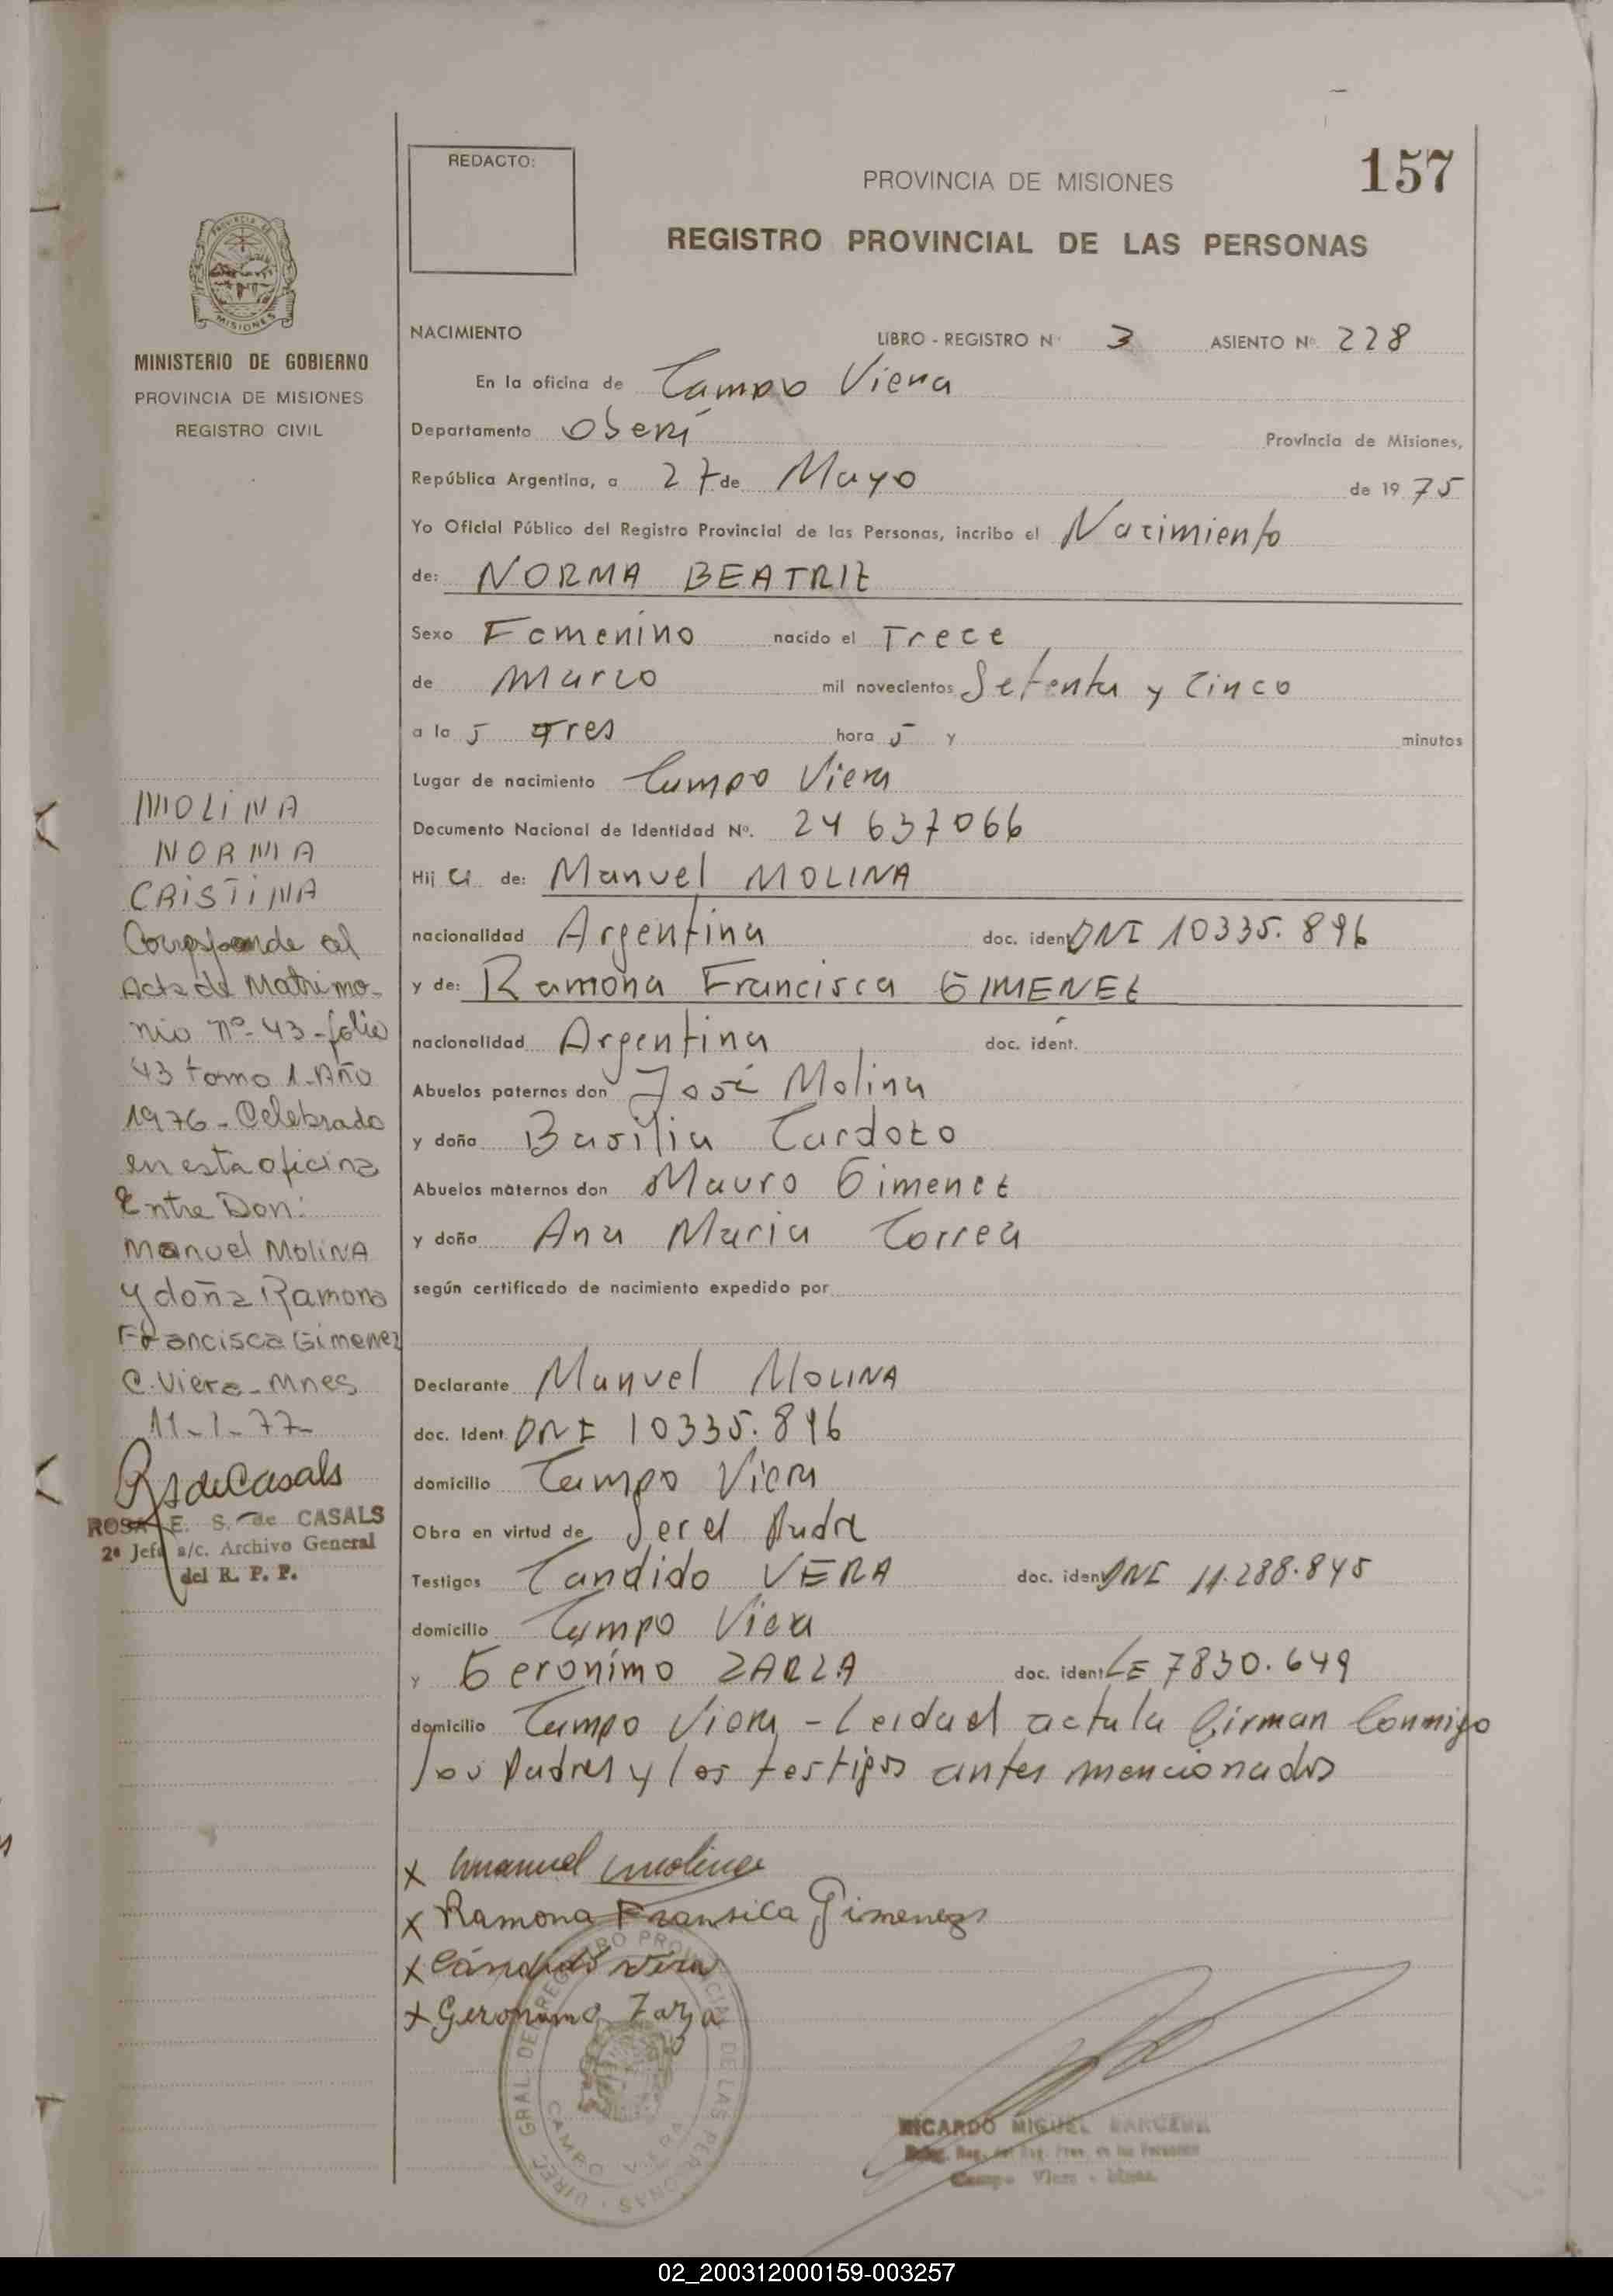 REDACTO:
PROVINCIA DE MISIONES
157
REGISTRO PROVINCIAL DE LAS PERSONAS
MINISTERIO DE GOBIERNO
PROVINCIA DE MISIONES
REGISTRO CIVIL
MOLINA
NORMA
CRISTINA
Corresponde al
Acta de Matrimo-
nio nº 43 - folio
43 tomo 1. Año
1976 - Celebrado
en esta oficina
Entre Don:
Manuel MOLINA
y doña Ramona
Francisca Gimenez
C. Viera - Mnes
11-1-77-
RSdeCasals
ROSA E. S. de CASALS
2ª Jefa a/c. Archivo General
del R. P. P.
NACIMIENTO LIBRO - REGISTRO Nº 3 ASIENTO Nº 228
En la oficina de Campo Viera
Departamento Oberá Provincia de Misiones,
República Argentina, a 27 de Mayo de 1975
Yo Oficial Público del Registro Provincial de las Personas, incribo el Nacimiento
de: NORMA BEATRIZ
Sexo Femenino nacido el Trece
de Marzo mil novecientos Setenta y Cinco
a la s Tres hora s y minutos
Lugar de nacimiento Campo Viera
Documento Nacional de Identidad Nº. 24 637066
Hij a de: Manuel MOLINA
nacionalidad Argentina doc. ident DNI 10335.896
y de: Ramona Francisca GIMENEZ
nacionalidad Argentina doc. ident.
Abuelos paternos don José Molina
y doña Basilia Cardozo
Abuelos maternos don Mauro Gimenez
y doña Ana Maria Correa
según certificado de nacimiento expedido por
Declarante Manuel MOLINA
doc. Ident. DNI 10335.896
domicilio Campo Viera
Obra en virtud de Ser el Padre
Testigos Candido VERA doc. ident DNI 11.288.845
domicilio Campo Viera
y Geronimo ZARZA doc. ident LE 7830.649
domicilio Campo Viera - Leida el acta la firman Conmigo
los Padres y los testigos antes mencionados
x Manuel Molina
x Ramona Fransica Gimenez
x Cándido Vera
x Geronimo Zarza
DIREC. GRAL. DEL REGISTRO PROVINCIAL DE LAS PERSONAS
CAMPO VIERA
RICARDO MIGUEL
Campo Viera - Mnes.
02_200312000159-003257